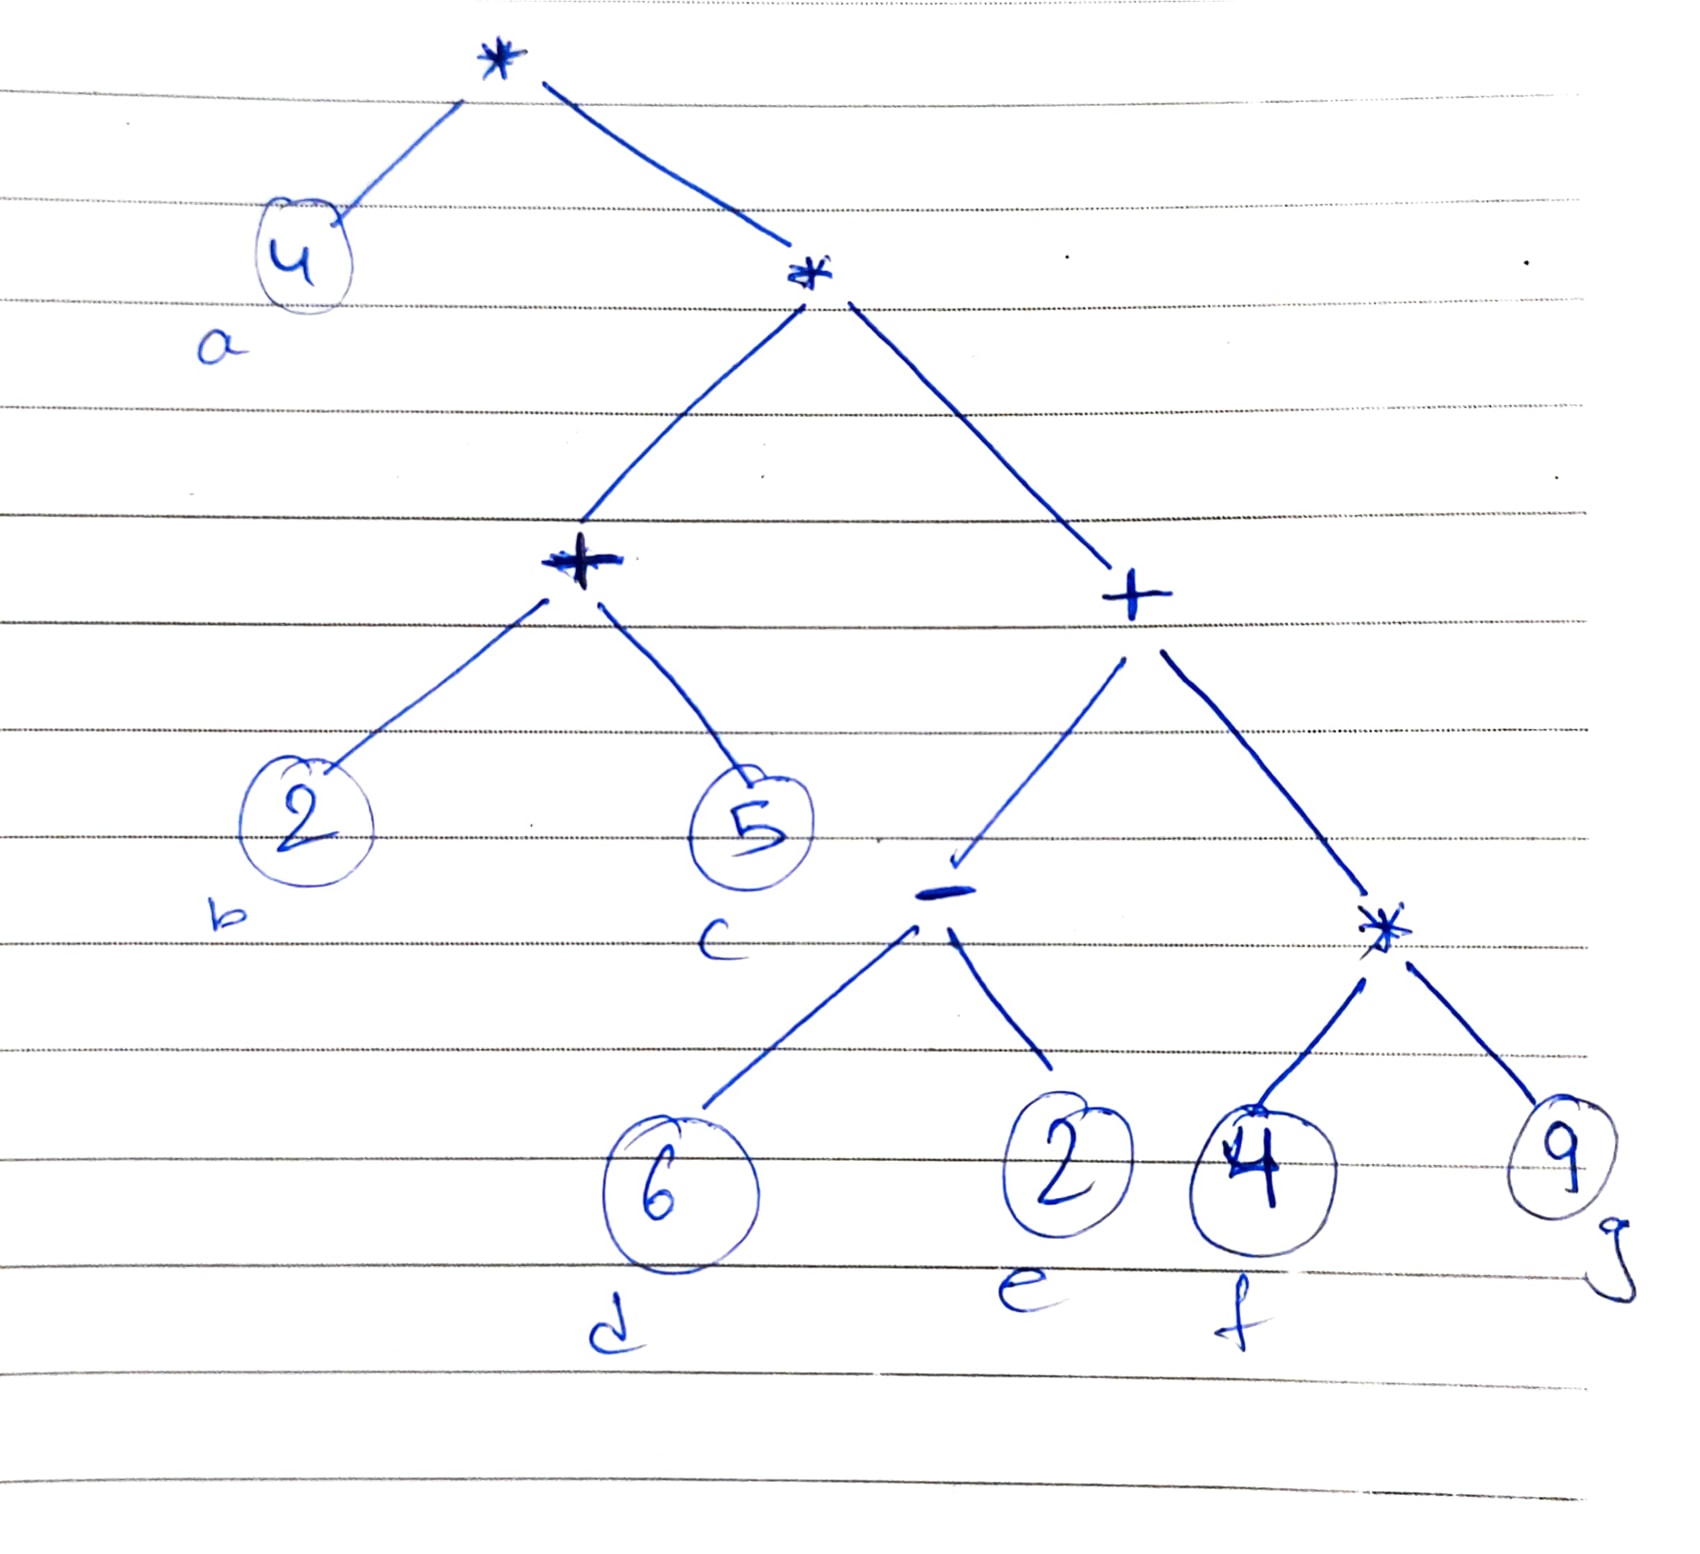 *
4
a
*
+
+
2
5
b
c
-
*
6
2
4
9
d
e
f
g